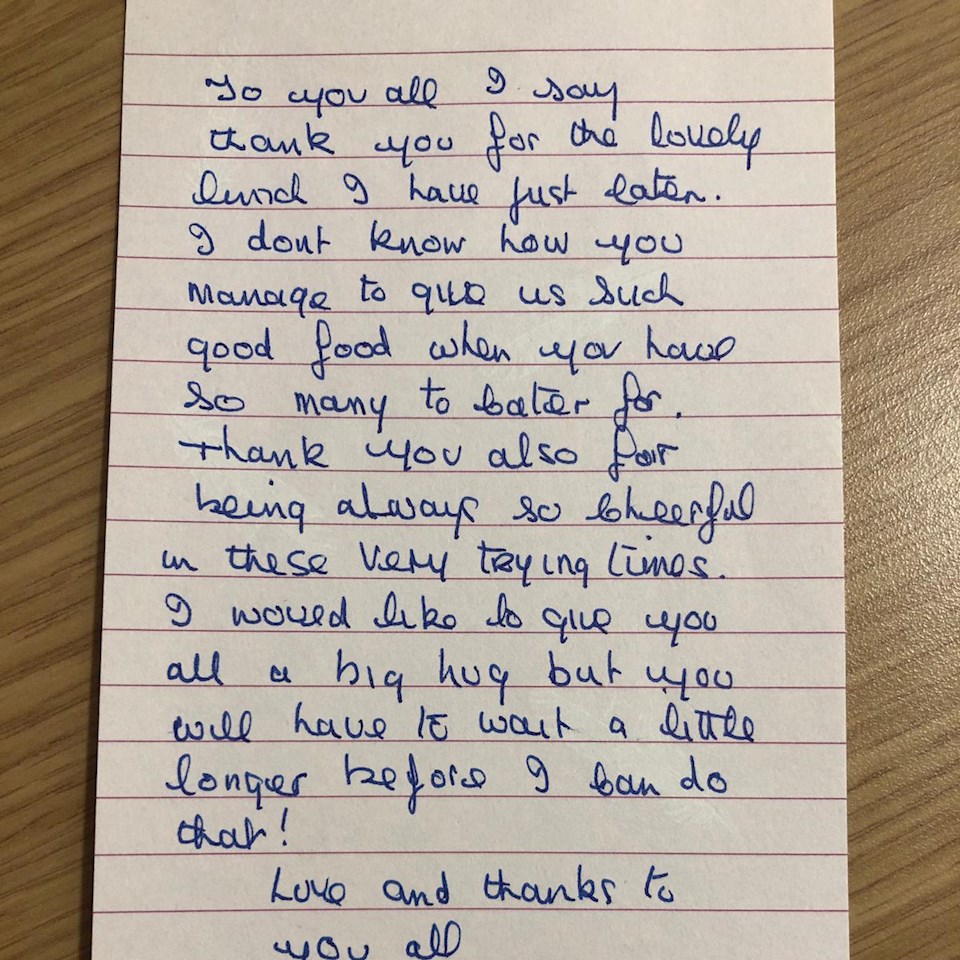 To you all I say
thank you for the lovely
lunch I have just eaten.
I dont know how you
manage to give us such
good food when you have
so many to cater for.
Thank you also for
being always so cheerful
in these very trying times.
I would like to give you
all a big hug but you
will have to wait a little
longer before I can do
that!
Love and thanks to
you all